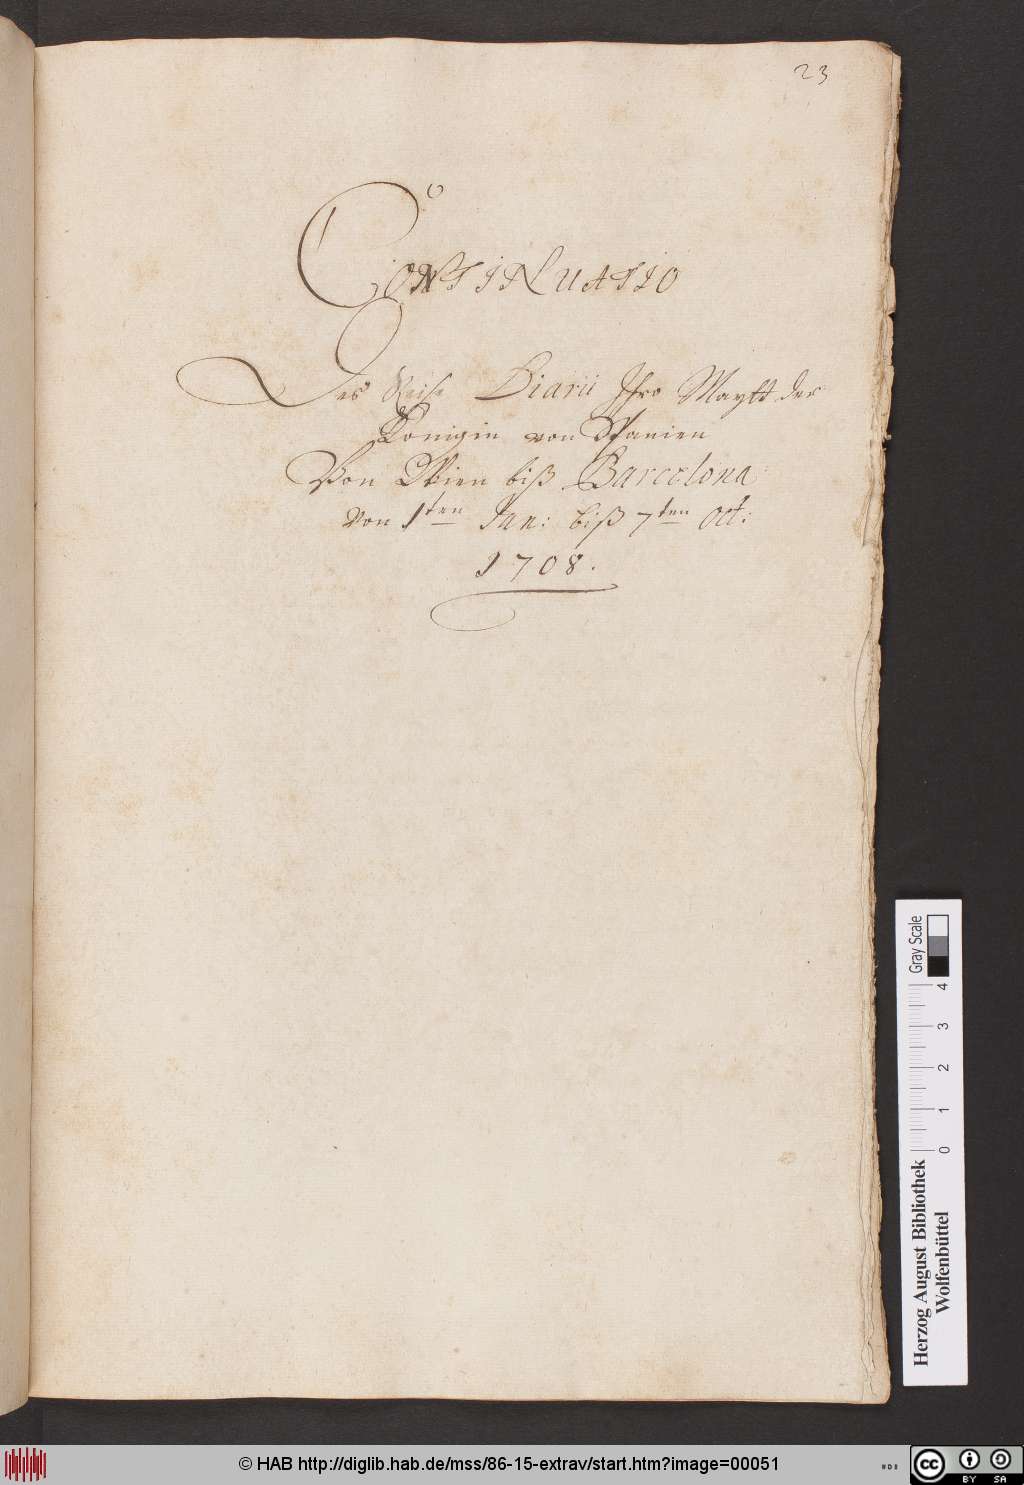 23
CONTINUATIO
Des Reise Diarii Ihro Maytt der
Königin von Spanien
Von Wien biß Barcelona
von 1ten Jan: biß 7ten Oct:
1708.
Gray Scale
0 1 2 3 4
Herzog August Bibliothek
Wolfenbüttel
© HAB http://diglib.hab.de/mss/86-15-extrav/start.htm?image=00051
cc BY SA